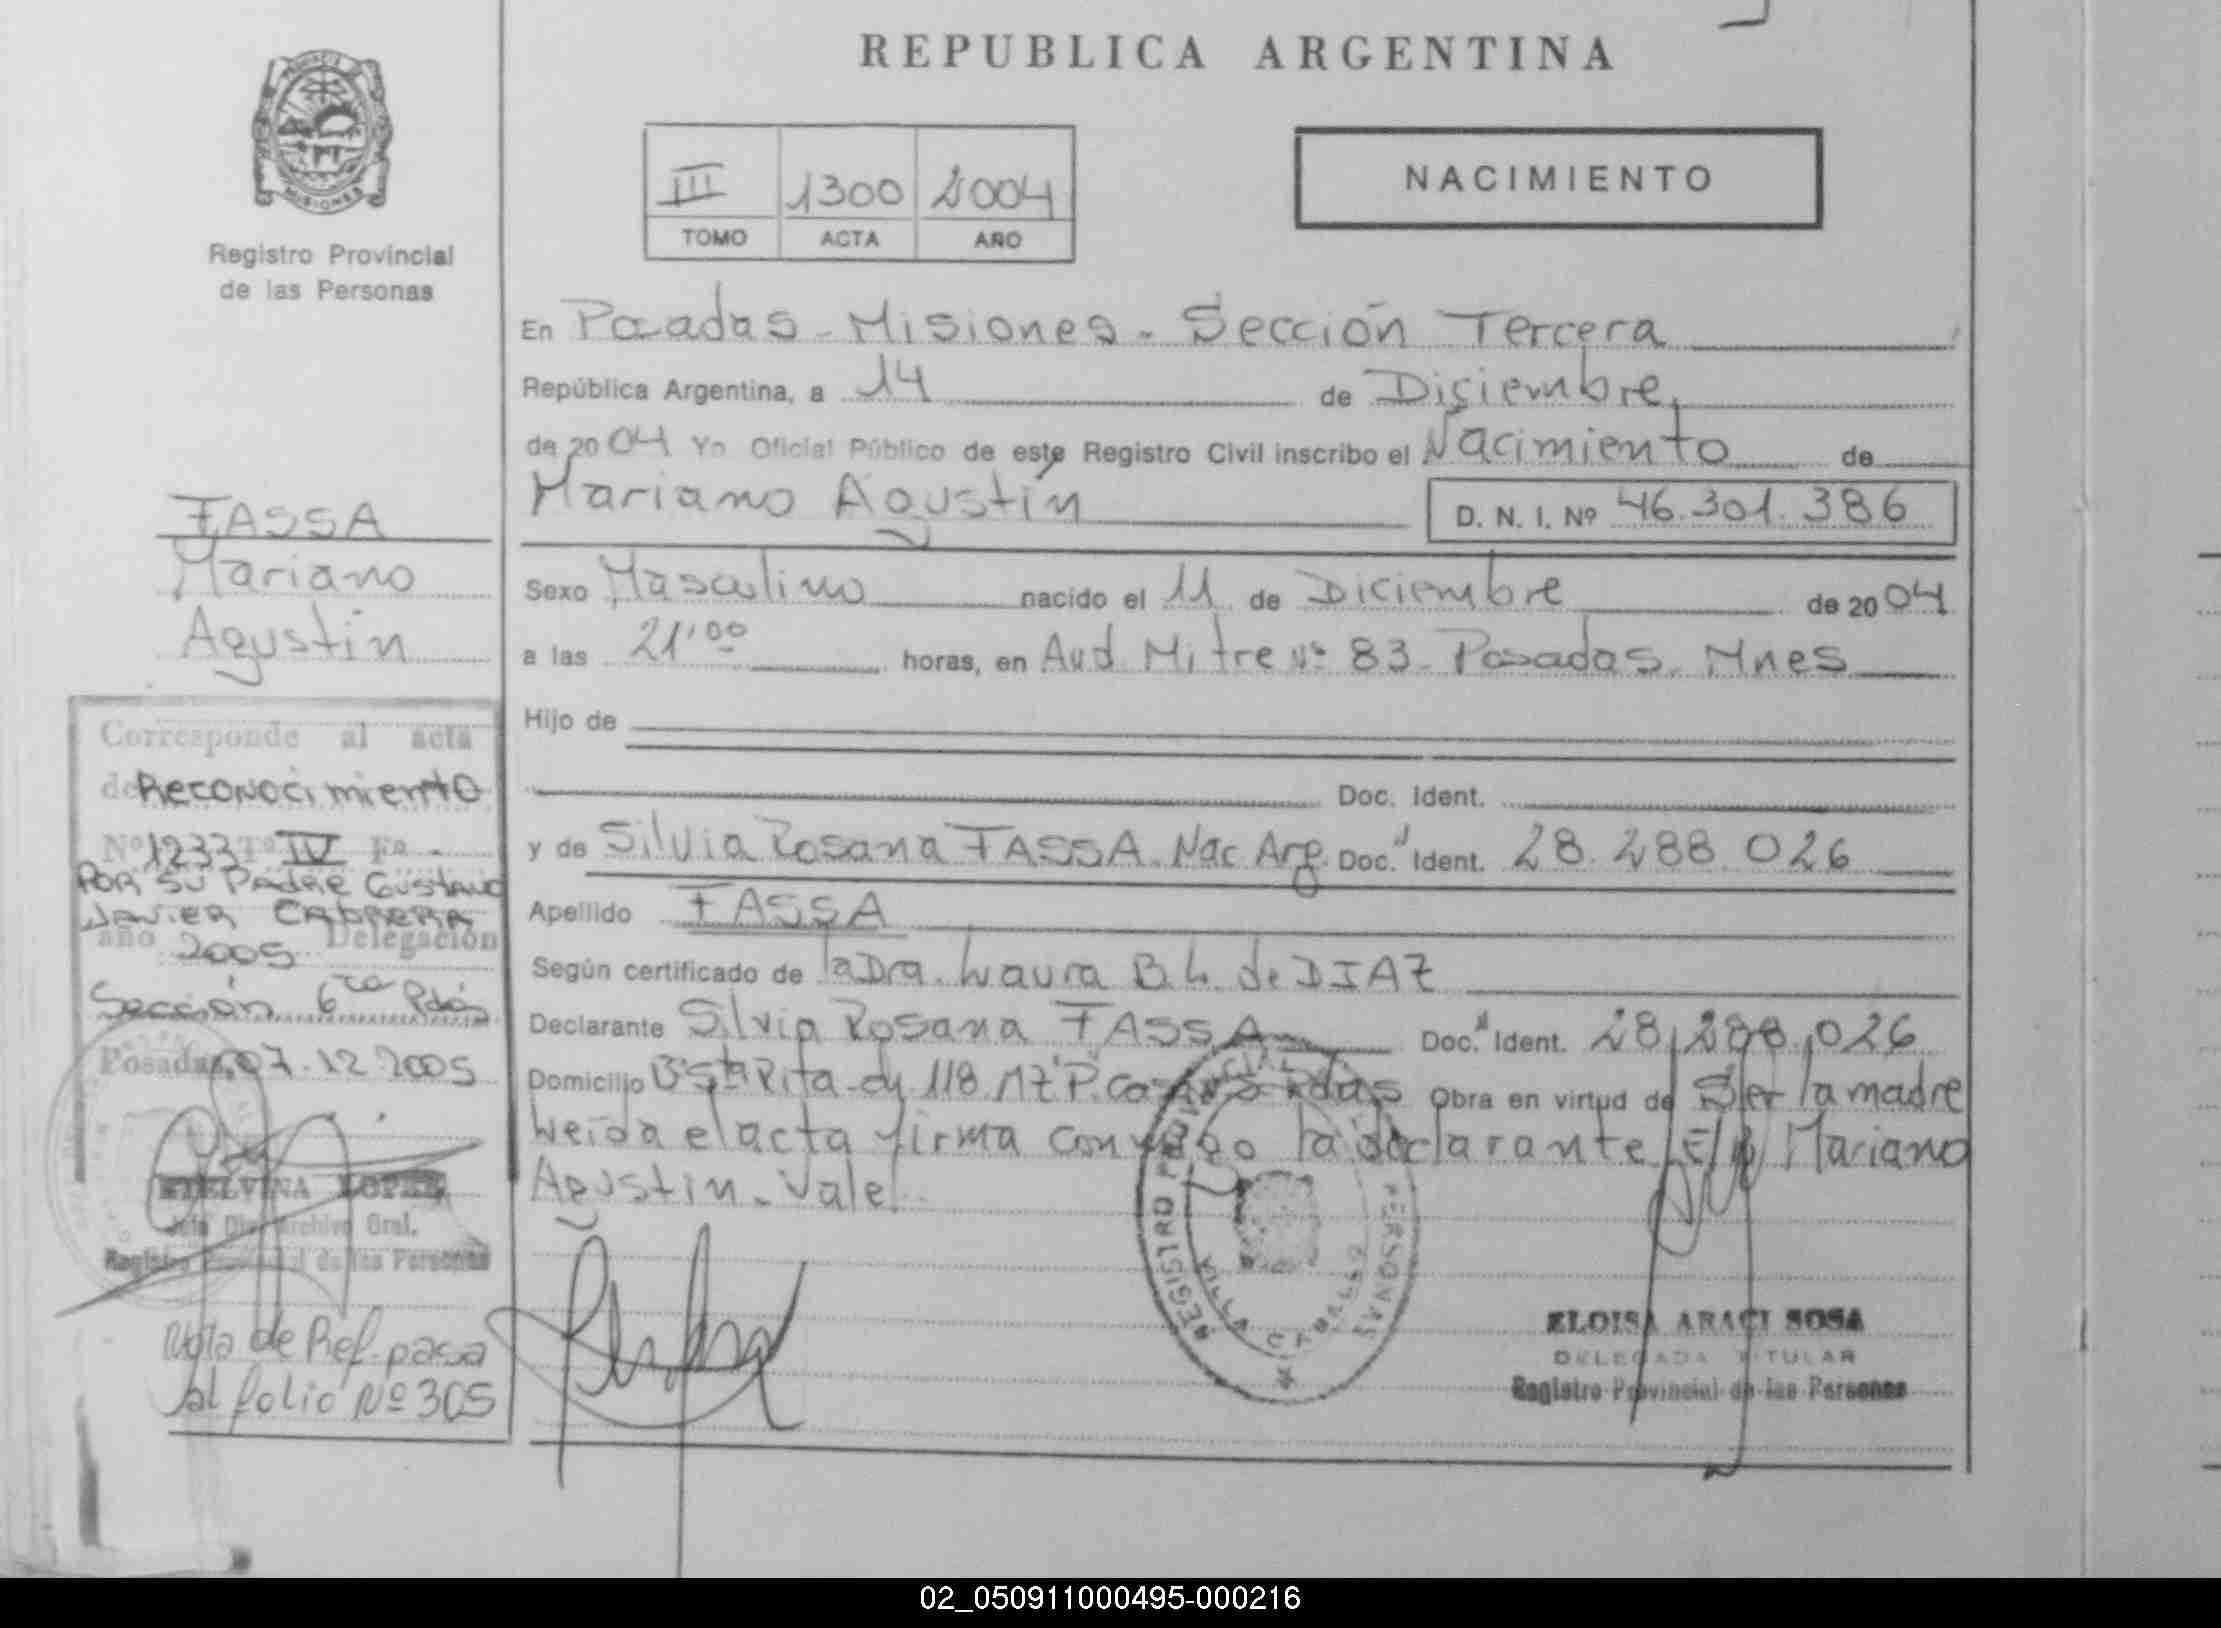 REPUBLICA ARGENTINA
MISIONES
Registro Provincial
de las Personas
III 1300 2004
TOMO ACTA AÑO
NACIMIENTO
En Posadas - Misiones - Sección Tercera
República Argentina, a 14 de Diciembre
de 2004 Yo Oficial Público de este Registro Civil inscribo el Nacimiento de
Mariano Agustín D. N. I. Nº 46.301.386
Sexo Masculino nacido el 11 de Diciembre de 2004
a las 21'00 horas, en Avd. Mitre Nº 83 - Posadas. Mnes
Hijo de
Doc. Ident.
y de Silvia Rosana FASSA. Nac. Arg. Doc. Ident. 28.288.026
Apellido FASSA
Según certificado de la Dra. Laura B. L. de DIAZ
Declarante Silvia Rosana FASSA Doc. Ident. 28.288.026
Domicilio Bº Sta Rita - 118 Mz P. Pdas Obra en virtud de Ser la madre
Leída el acta firma conmigo la declarante. E/l Mariano
Agustín - Vale
REGISTRO PROVINCIAL PERSONAS
VILLA URQUIZA
ELOISA ARACI SOSA
DELEGADA TITULAR
Registro Provincial de las Personas
FASSA
Mariano
Agustín
Corresponde al acta
de Reconocimiento
Nº 1233 Tº IV Fº -
POR SU PADRE GUSTAVO
JAVIER CABRERA
año 2005 Delegación
Sección 6ta Pdas
Posadas, 07.12.2005
ETELVINA LOPEZ
Jefa Dto. Archivo Gral.
Registro Provincial de las Personas
Nota de Ref. pasa
al folio Nº 305
02_050911000495-000216